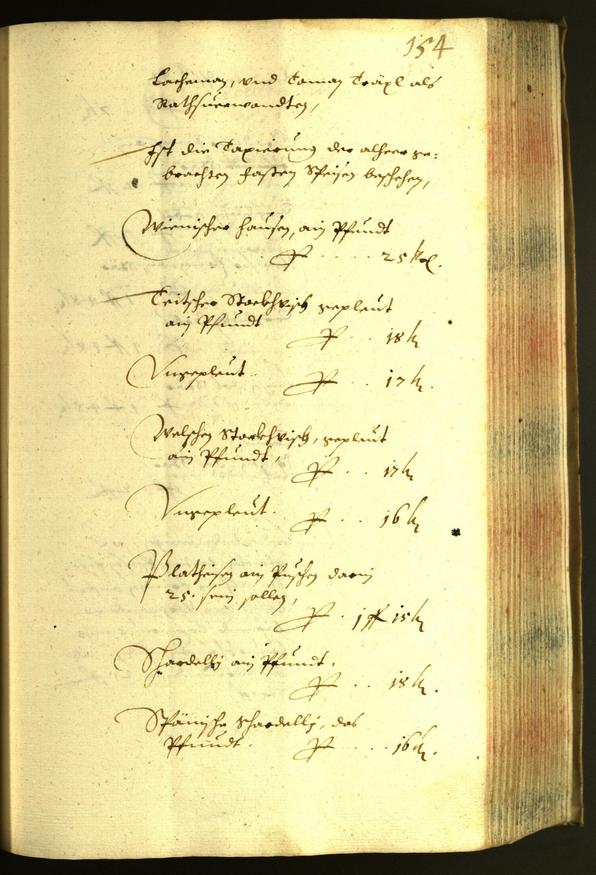 154
Lacheman, vnd Taman Träxl als
Rathsuerwandten,
Ist die Taxierung der alheer ge:
brachten fasten Speisen beschehen,
Wienischer hausen, ain Pfundt
P ..... 25 kr.
Teitscher Stockhvisch gepleut
ain Pfundt
P .. 18 kr
Vngepleut.
P .. 17 kr.
Welschen Stockhvisch, gepleut
ain Pfundt,
P .. 17 kr
Vngepleut.
P .. 16 kr
Platheisen ain Puschen darin
25. sein sollen,
P . 1 fl 15 kr
Schardelly ain Pfundt.
P .. 18 kr.
Spänische schardelly, das
Pfundt.
P ... 16 kr.